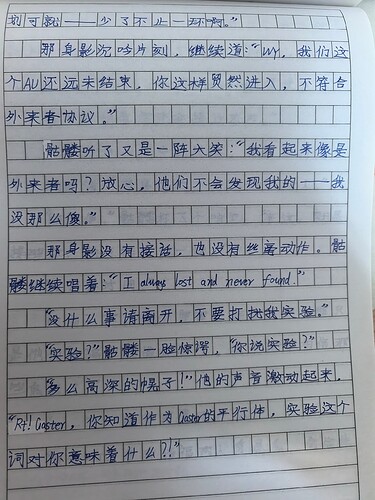 划可就——少了不止一环啊。”
那身影沉吟片刻，继续道：“Wy，我们这
个AU还远未结束，你这样贸然进入，不符合
外来者协议。”
骷髅听了又是一阵大笑：“我看起来像是
外来者吗？放心，他们不会发现我的——我
没那么傻。”
那身影没有接话，也没有丝毫动作。骷
髅继续唱着：“I always lost and never found.”
“没什么事请离开，不要打扰我实验。”
“实验？”骷髅一脸惊愕，“你说实验？”
“多么高深的幌子！”他的声音激动起来，
“Rf! Gaster，你知道作为Gaster的平行体，实验这个
词对你意味着什么？！”